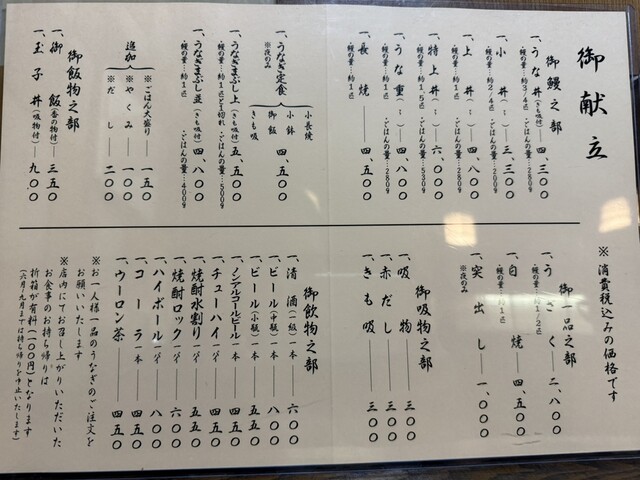 御献立
御鰻之部
一、うな丼(きも吸付)――四、三〇〇
・鰻の量…約3/4匹 ・ごはんの量…280g
一、小丼(〃)――三、三〇〇
・鰻の量…約2/4匹 ・ごはんの量…200g
一、上丼(〃)――四、八〇〇
・鰻の量…約1匹 ・ごはんの量…280g
一、特上丼(〃)――六、〇〇〇
・鰻の量…約1.5匹 ・ごはんの量…530g
一、うな重(〃)――四、八〇〇
・鰻の量…約1匹 ・ごはんの量…280g
一、長焼――四、五〇〇
・鰻の量…約1匹
一、うなぎ定食
※夜のみ
小長焼
小鉢
御飯
きも吸
四、五〇〇
一、うなぎまぶし上(きも吸付)五、五〇〇
・鰻の量…約1匹と3切れ ・ごはんの量…500g
一、うなぎまぶし並(きも吸付)四、八〇〇
・鰻の量…約1匹 ・ごはんの量…400g
追加
※ごはん大盛り――一五〇
※やくみ――一〇〇
※だし――二〇〇
御飯物之部
一、御飯(香の物付)――三五〇
一、玉子丼(吸物付)――九〇〇
※消費税込みの価格です
御一品之部
一、うざく――二、八〇〇
・鰻の量…約1/2匹
一、白焼――四、五〇〇
・鰻の量…約1匹
一、突出し――一、〇〇〇
※夜のみ
御吸物之部
一、吸物――三〇〇
一、赤だし――三〇〇
一、きも吸――三〇〇
御飲物之部
一、清酒(一級)一本――六〇〇
一、ビール(中瓶)一本――八〇〇
一、ビール(小瓶)一本――五五〇
一、ノンアルコールビール一本――四五〇
一、チューハイ一パイ――四五〇
一、焼酎水割り一パイ――五五〇
一、焼酎ロック一パイ――六〇〇
一、ハイボール一パイ――八〇〇
一、コーラ一本――四五〇
一、ウーロン茶――四五〇
※お一人様一品のうなぎのご注文を
お願いいたします
※店内にてお召し上がりいただいた
お食事のお持ち帰りは
折箱が有料(一〇〇円)となります
(六月〜九月までは持ち帰りを中止いたします)